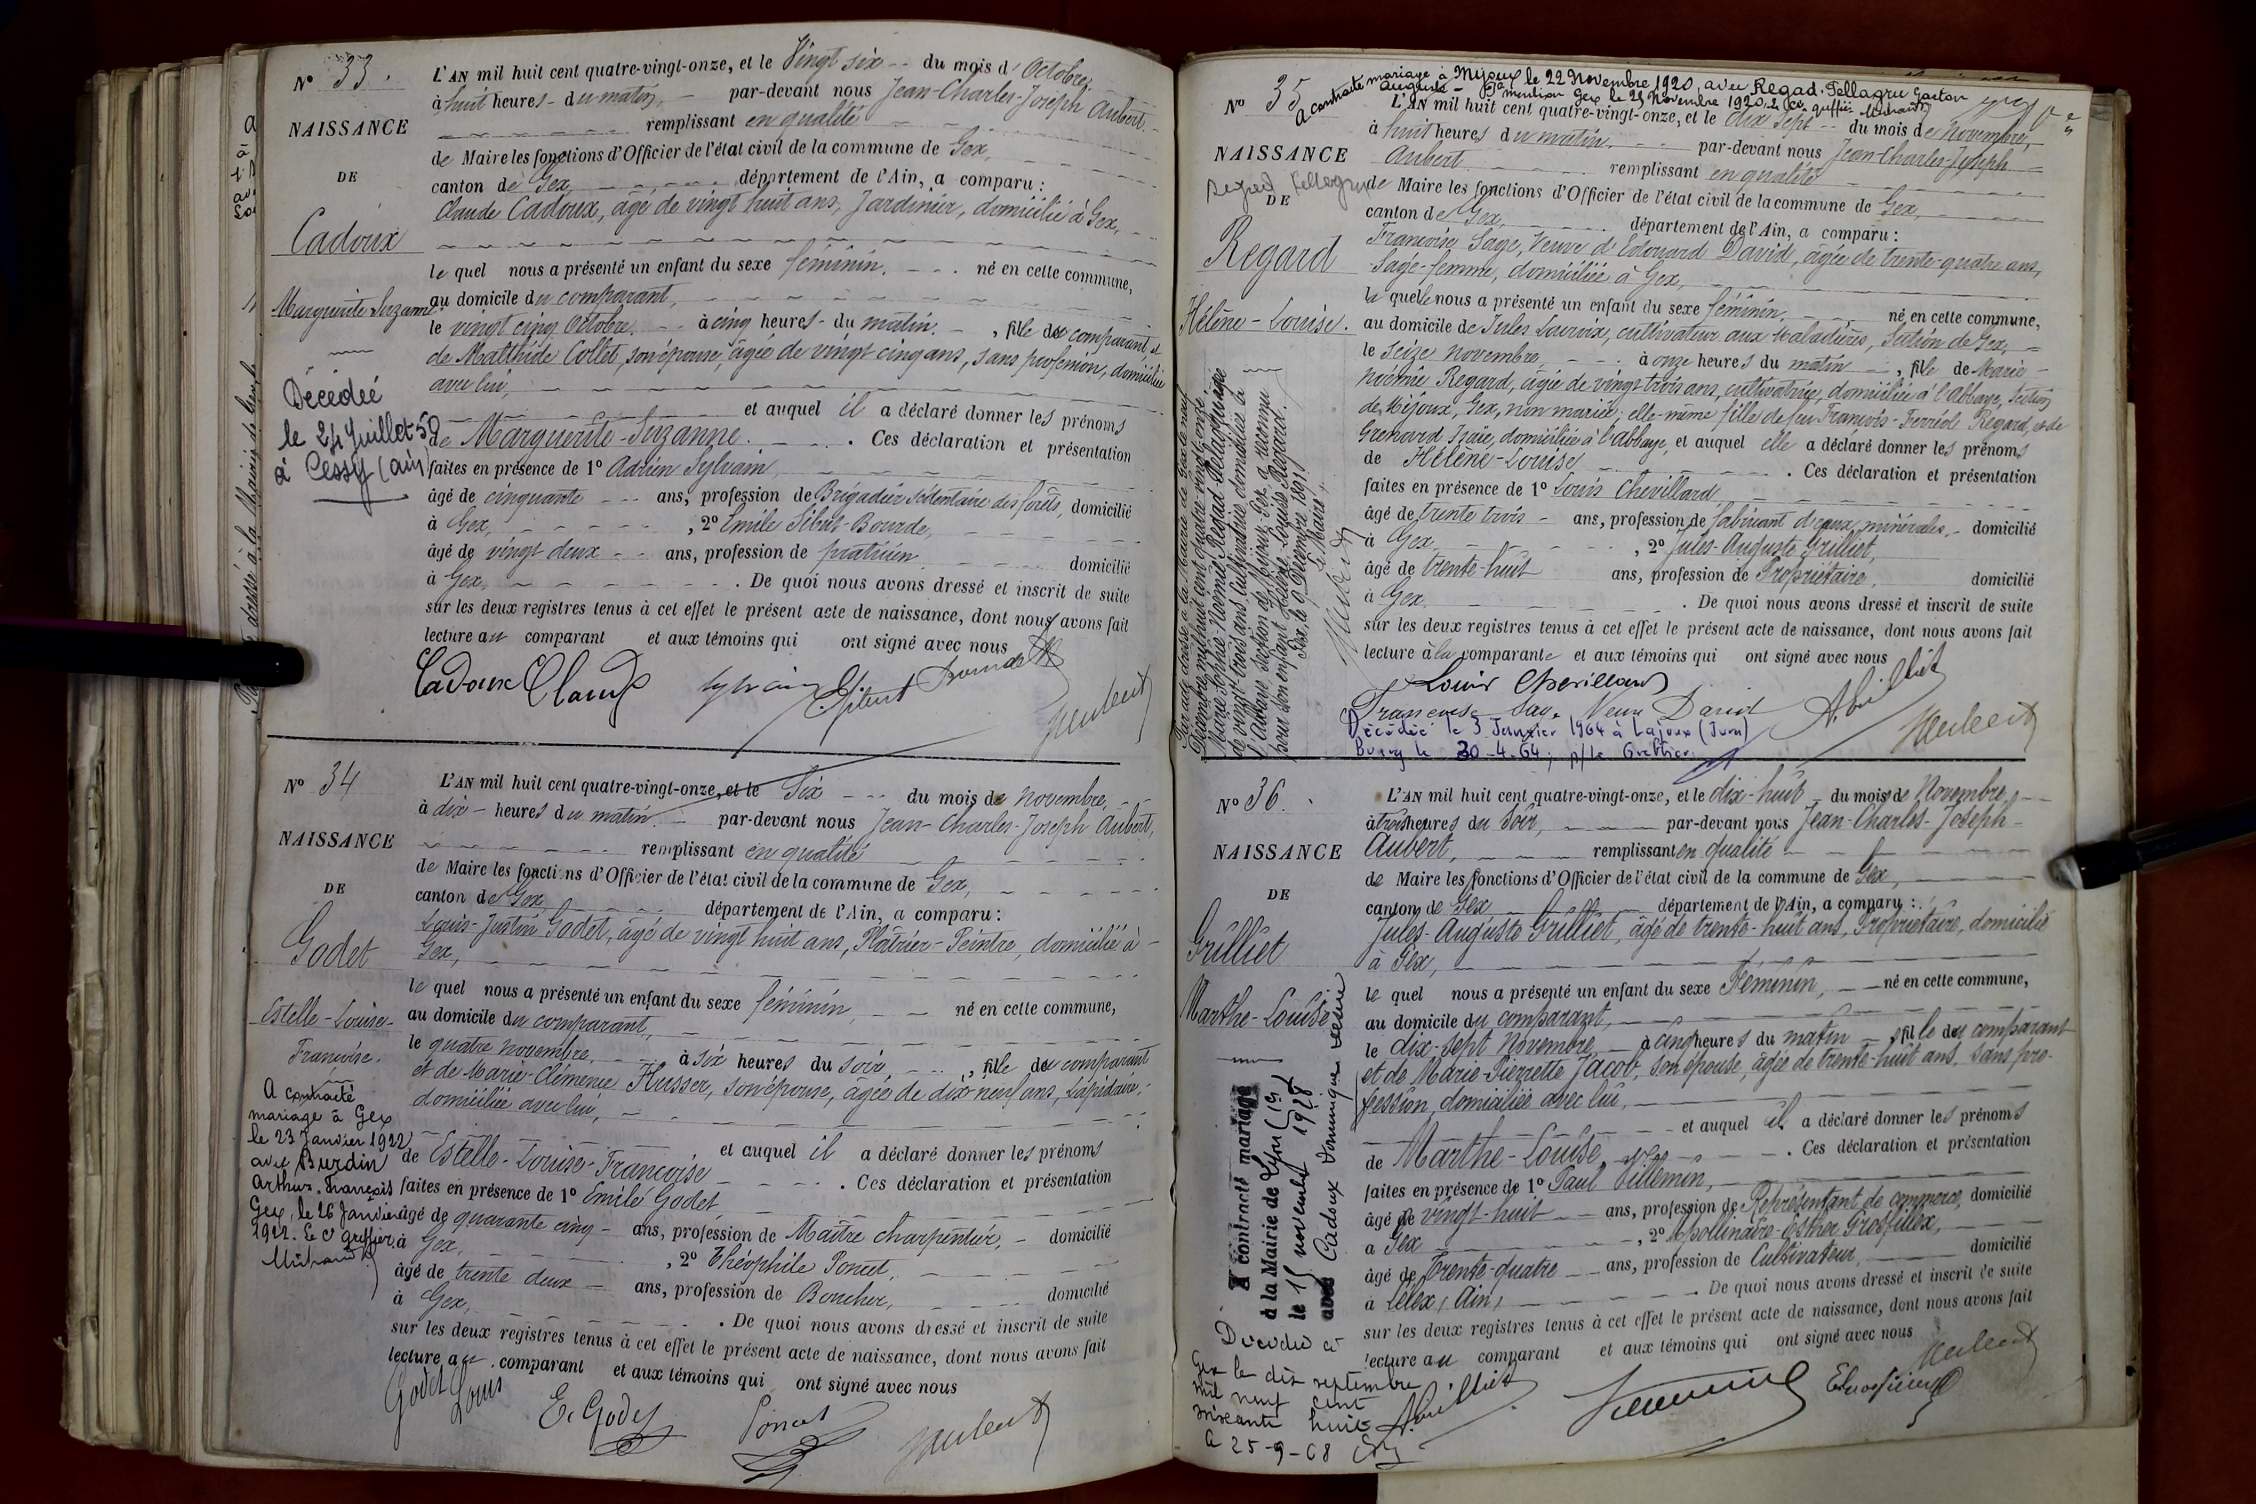 N° 33.
NAISSANCE
DE
Cadoux
Marguerite Suzanne
Décédée
le 24 Juillet 50
à Cessy (Ain)
L'AN mil huit cent quatre-vingt-onze, et le Vingt six du mois d'Octobre,
à huit heures du matin, par-devant nous Jean-Charles-Joseph Aubert
remplissant en qualité
de Maire les fonctions d'Officier de l'état civil de la commune de Gex,
canton de Gex, département de l'Ain, a comparu :
Claude Cadoux, âgé de vingt huit ans, Jardinier, domicilié à Gex,
le quel nous a présenté un enfant du sexe féminin, né en cette commune,
au domicile du comparant,
le vingt cinq Octobre, à cinq heures du matin, fille du comparant et
de Mathilde Collet, son épouse, âgée de vingt cinq ans, sans profession, domiciliée
avec lui,
et auquel il a déclaré donner les prénoms
de Marguerite-Suzanne. Ces déclaration et présentation
faites en présence de 1° Adrien Sylvain,
âgé de cinquante ans, profession de Brigadier sédentaire des forêts, domicilié
à Gex, 2° Emile Sibut-Bourde,
âgé de vingt deux ans, profession de praticien domicilié
à Gex, . De quoi nous avons dressé et inscrit de suite
sur les deux registres tenus à cet effet le présent acte de naissance, dont nous avons fait
lecture au comparant et aux témoins qui ont signé avec nous
Cadoux Claude Sylvain Sibut Bourde Aubert
N° 34
NAISSANCE
DE
Godet
Estelle-Louise-
Françoise.
A contracté
mariage à Gex
le 23 Janvier 1922
avec Burdin
Arthur-François
Gex, le 26 Janvier
1922. Le Cs greffier,
L'AN mil huit cent quatre-vingt-onze, et le Six du mois de Novembre,
à dix heures du matin. par-devant nous Jean-Charles-Joseph Aubert,
remplissant en qualité
de Maire les fonctions d'Officier de l'état civil de la commune de Gex,
canton de Gex département de l'Ain, a comparu :
Louis-Justin Godet, âgé de vingt huit ans, Plâtrier-Peintre, domicilié à
Gex,
le quel nous a présenté un enfant du sexe féminin né en cette commune,
au domicile du comparant,
le quatre novembre, à six heures du soir, fille du comparant
et de Marie-Clémence Husser, son épouse, âgée de dix neuf ans, Lapidaire,
domiciliée avec lui,
et auquel il a déclaré donner les prénoms
de Estelle-Louise-Françoise . Ces déclaration et présentation
faites en présence de 1° Emile Godet
âgé de quarante cinq ans, profession de Maître charpentier, domicilié
à Gex, , 2° Théophile Poncet,
âgé de trente deux ans, profession de Boucher, domicilié
à Gex, . De quoi nous avons dressé et inscrit de suite
sur les deux registres tenus à cet effet le présent acte de naissance, dont nous avons fait
lecture au comparant et aux témoins qui ont signé avec nous
Godet Louis E. Godet Poncet Aubert
N° 35
A contracté mariage à Mijoux le 22 Novembre 1920, avec Regad-Pellagru Gaston
Auguste - mention Gex, le 25 Novembre 1920, Le Cs greffier
NAISSANCE
Regad Pellagru
DE
Regard
Hélène-Louise.
Par acte dressé à la Mairie de Gex le neuf
Décembre mil huit cent quatre vingt onze
Marie Sophie Noémie Regad Pellagru, âgée
de vingt trois ans, cultivatrice, domiciliée à
l'Abbaye, Section de Mijoux, Gex, a reconnu
pour son enfant Hélène Louise Regard.
Gex, le 9 Décembre 1891
Le Maire,
Aubert
L'AN mil huit cent quatre-vingt-onze, et le dix sept du mois de Novembre,
à huit heures du matin, par-devant nous Jean-Charles-Joseph
Aubert remplissant en qualité
de Maire les fonctions d'Officier de l'état civil de la commune de Gex,
canton de Gex, département de l'Ain, a comparu :
Françoise Sage, Veuve d'Edouard David, âgée de trente-quatre ans,
Sage-femme, domiciliée à Gex,
la quelle nous a présenté un enfant du sexe féminin, né en cette commune,
au domicile de Jules Lacroix, cultivateur aux Maladières, Section de Gex,
le seize novembre, à onze heures du matin, fille de Marie-
Noémie Regard, âgée de vingt trois ans, cultivatrice, domiciliée à l'Abbaye, Section
de Mijoux, Gex, non mariée; elle-même fille de feu François-Ferréole Regard, et de
Grenard Izaïe, domiciliée à l'abbaye, et auquel elle a déclaré donner les prénoms
de Hélène-Louise . Ces déclaration et présentation
faites en présence de 1° Louis Chevillard
âgé de trente trois ans, profession de fabricant d'eaux minérales, domicilié
à Gex , 2° Jules-Auguste Grilliet,
âgé de trente-huit ans, profession de Propriétaire, domicilié
à Gex. . De quoi nous avons dressé et inscrit de suite
sur les deux registres tenus à cet effet le présent acte de naissance, dont nous avons fait
lecture à la comparante et aux témoins qui ont signé avec nous
Louis Chevillard
Françoise Sage Veuve David A. Grilliet Aubert
Décédée le 3 Janvier 1964 à Lajoux (Jura)
Bourg le 30-4-64; p/le Greffier
N° 36.
NAISSANCE
DE
Grilliet
Marthe-Louise
A contracté mariage
à la Mairie de Lyon
le 15 novembre 1928
avec Cadoux Dominique
Décédée à
Gex le dix septembre
mil neuf cent
soixante huit
A 25-9-68
L'AN mil huit cent quatre-vingt-onze, et le dix-huit du mois de Novembre
à trois heures du Soir, par-devant nous Jean-Charles-Joseph
Aubert, remplissant en qualité
de Maire les fonctions d'Officier de l'état civil de la commune de Gex,
canton de Gex département de l'Ain, a comparu :
Jules-Auguste Grilliet, âgé de trente-huit ans, Propriétaire, domicilié
à Gex,
le quel nous a présenté un enfant du sexe Féminin, né en cette commune,
au domicile du comparant,
le dix-sept Novembre à cinq heures du matin, fille du comparant
et de Marie-Pierrette Jacob, son épouse, âgée de trente-huit ans, sans pro-
fession, domiciliée avec lui,
et auquel il a déclaré donner les prénoms
de Marthe-Louise . Ces déclaration et présentation
faites en présence de 1° Paul Villemin,
âgé de vingt-huit ans, profession de Représentant de commerce, domicilié
à Gex , 2° Apollinaire-Esther Grosfillex,
âgé de Trente-quatre ans, profession de Cultivateur, domicilié
à Lélex, (Ain) . De quoi nous avons dressé et inscrit de suite
sur les deux registres tenus à cet effet le présent acte de naissance, dont nous avons fait
lecture au comparant et aux témoins qui ont signé avec nous
A. Grilliet Villemin E. Grosfillex Aubert